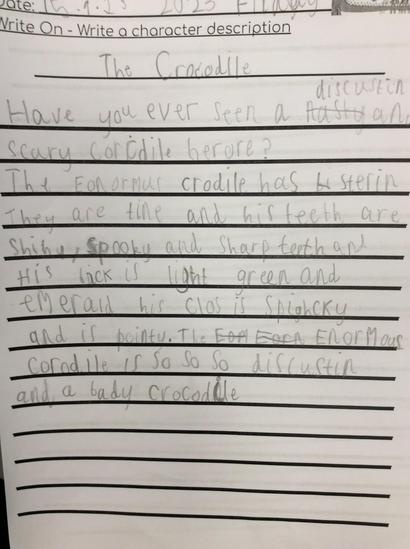 Date: 2023 Friday
Write On - Write a character description
The Crocodlle
discustin
Have you ever seen a nasty an
scary corcdile berore?
The Eonormus crodile has sterin
They are tine and his teeth are
Shihy, Spooky and Sharp teeth and
His back is light green and
emerald his clos is Spighcky
and is pointy. The Eon Eorn Enormous
corodile is So So So discustin
and a bady crocodile